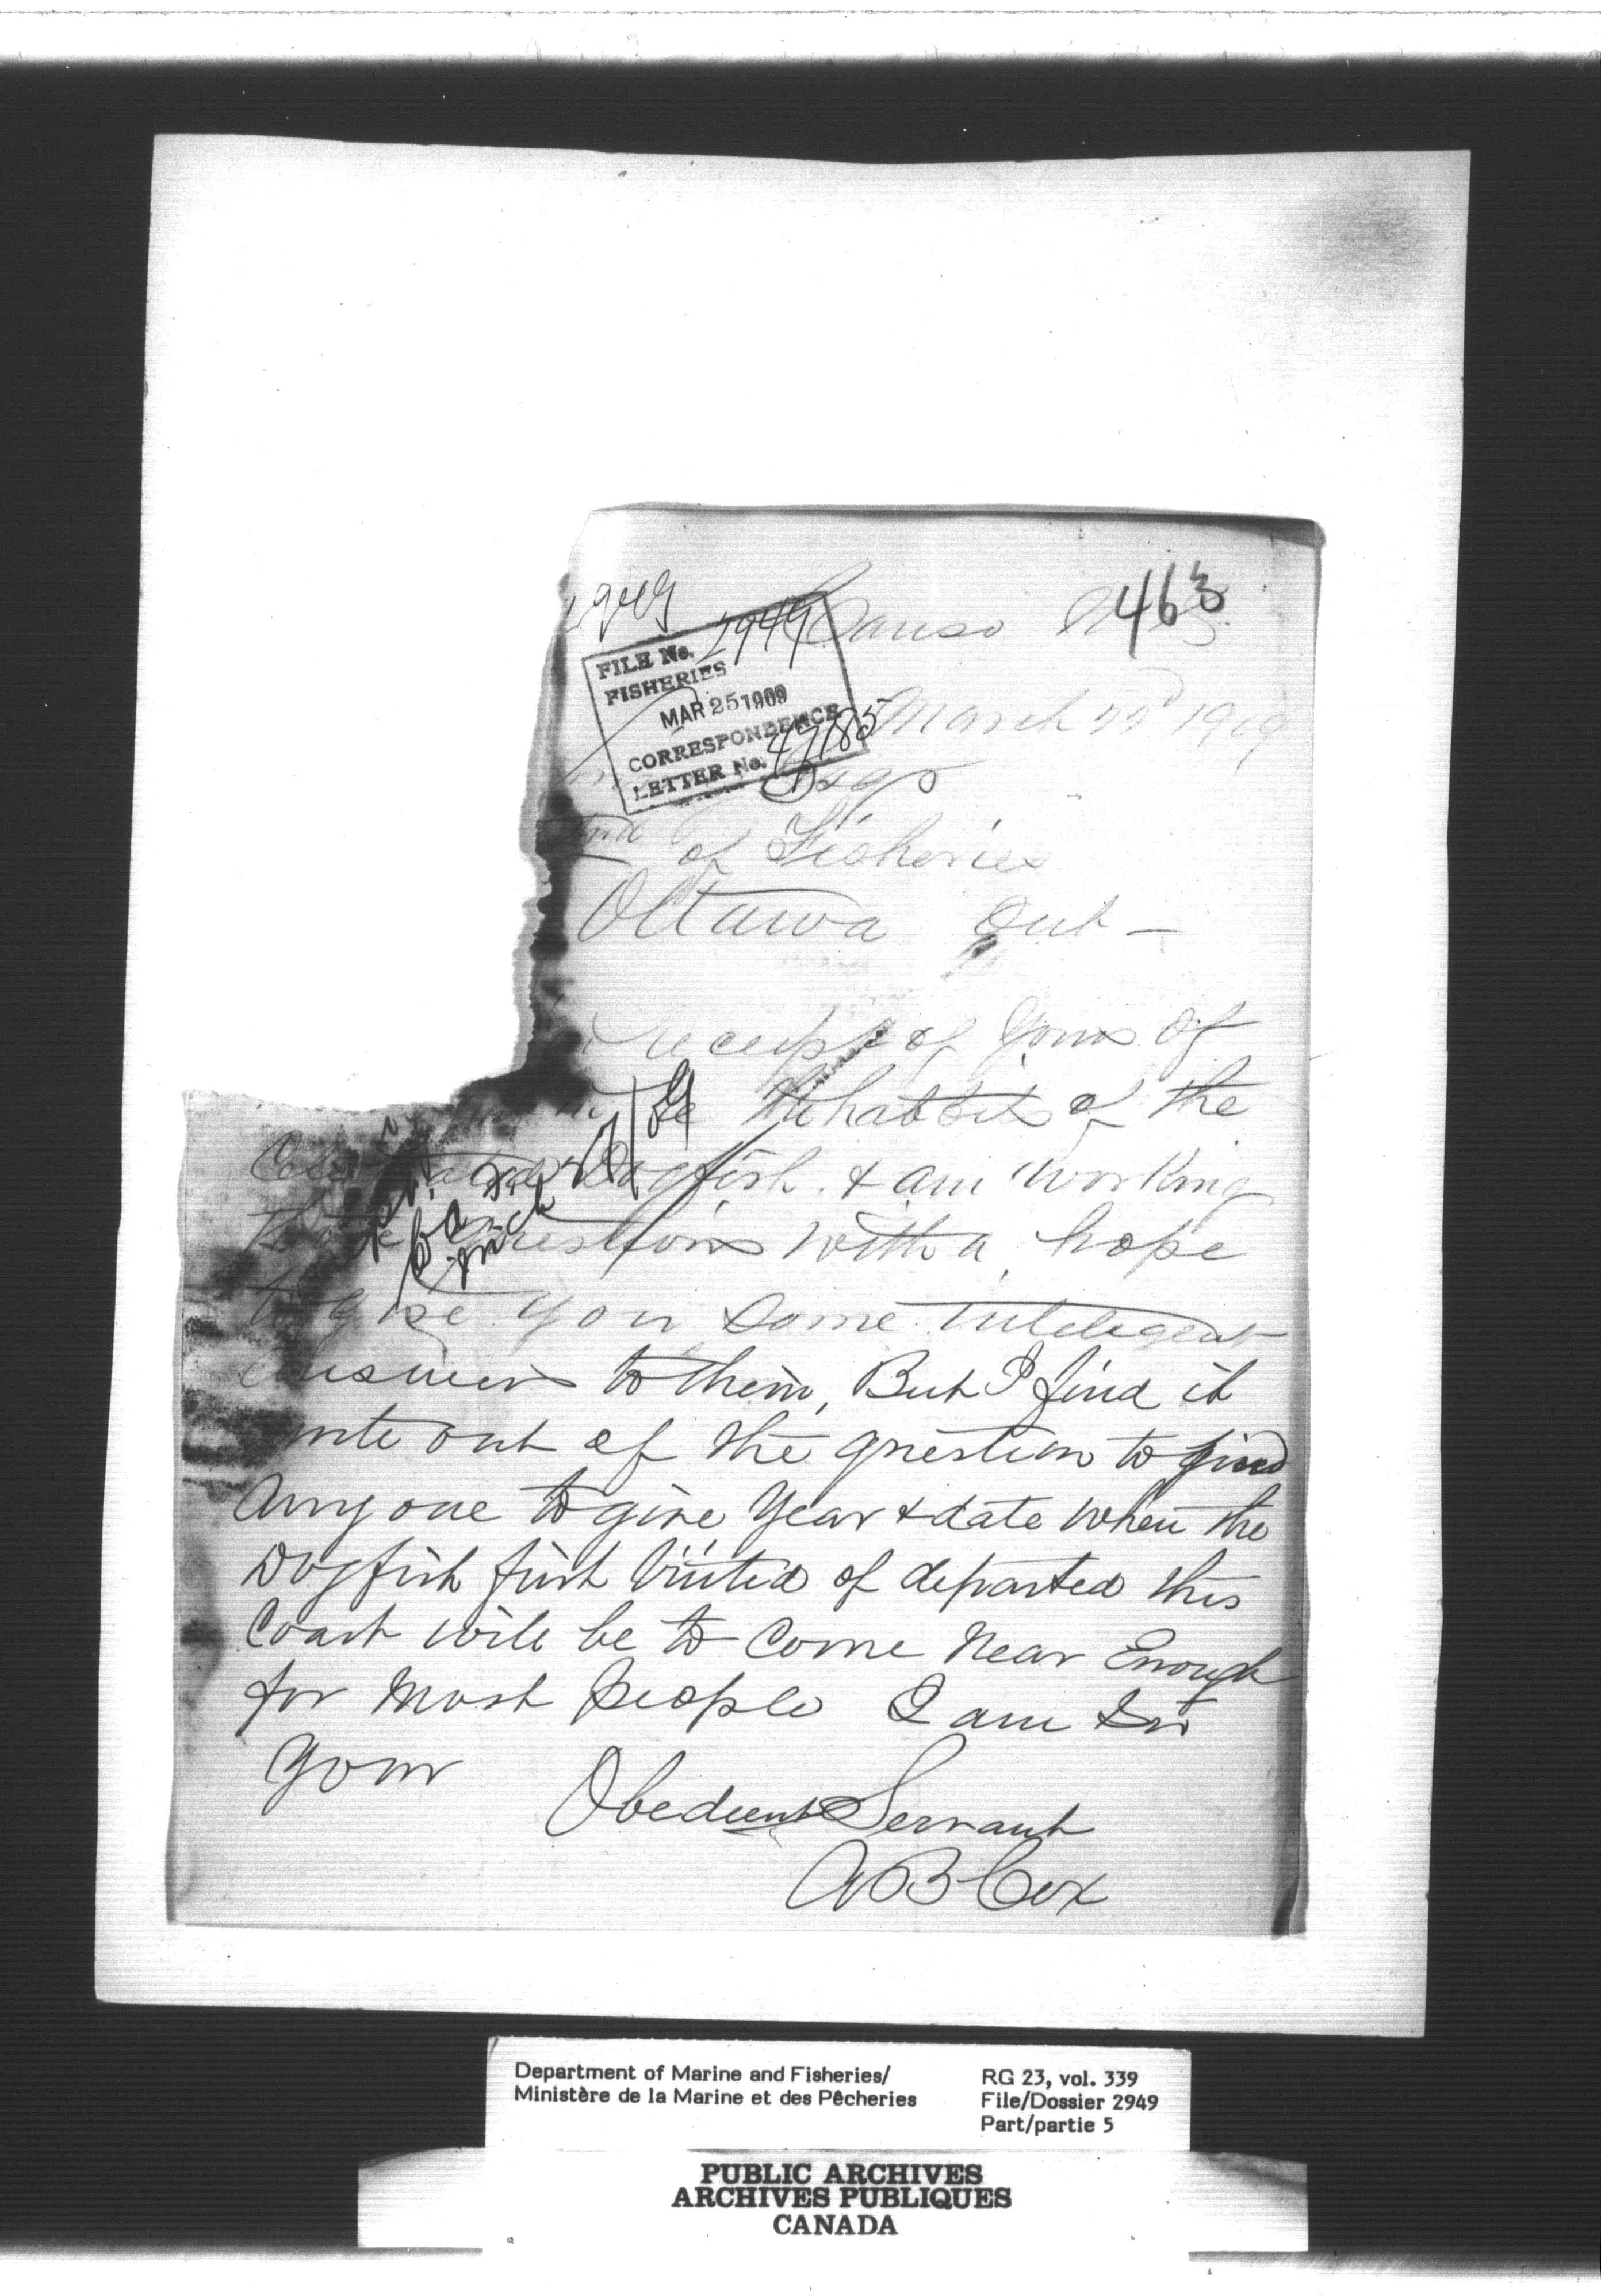 2949
463
2949 Canso N.S.
FILE No.
FISHERIES
MAR 25 1909
CORRESPONDENCE
LETTER No. 47185
March 22d 1909
Esqr
of Fisheries
Ottawa Ont —
receipt of yours of
the habbits of the
Dogfish. & am working
questions with a hope
to give you some intelegent
answers to them, But I find it
quite out of the question to find
Any one to give Year & date when the
Dogfish first visited of departed this
Coast will be to Come Near Enough
for Most people I am Sir
Your
Obedient Servant
A B Cox
Department of Marine and Fisheries/
Ministère de la Marine et des Pêcheries
RG 23, vol. 339
File/Dossier 2949
Part/partie 5
PUBLIC ARCHIVES
ARCHIVES PUBLIQUES
CANADA